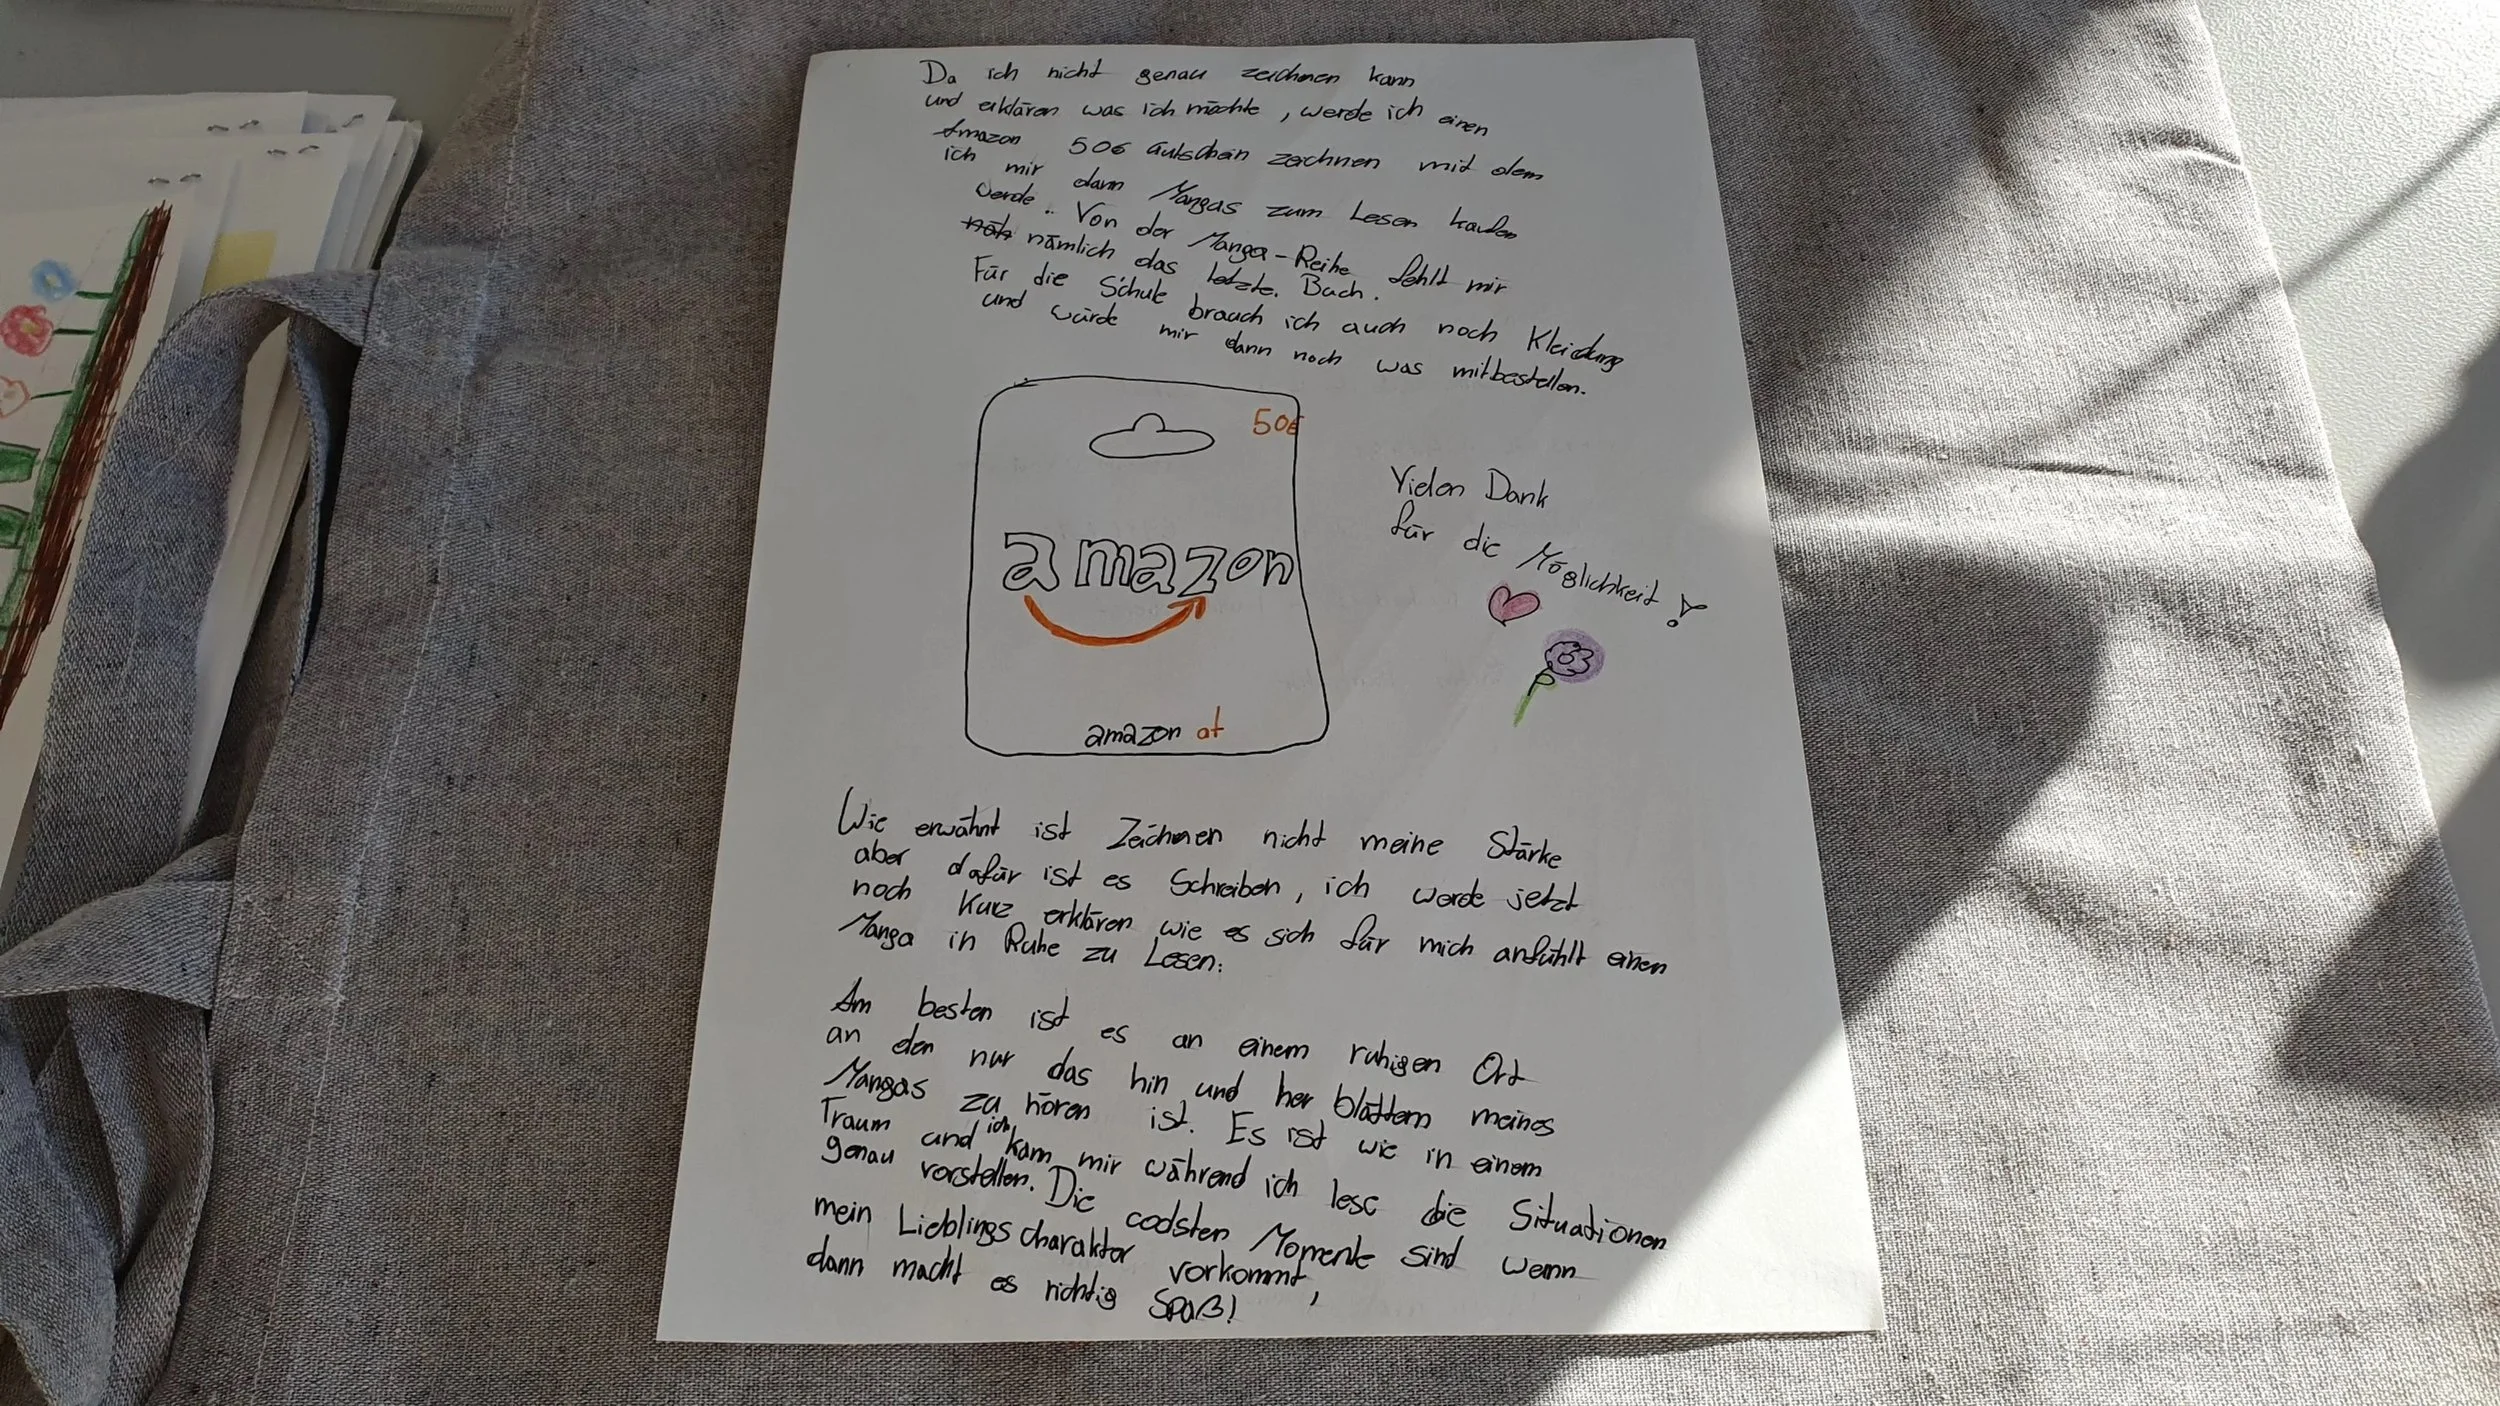 Da ich nicht genau zeichnen kann
und erklären was ich möchte, werde ich einen
Amazon 50€ Gutschein zeichnen mit dem
ich mir dann Mangas zum Lesen kaufen
werde. Von der Manga-Reihe fehlt mir
näh nämlich das letzte Buch.
Für die Schule brauch ich auch noch Kleidung
und würde mir dann noch was mitbestellen.
50€
amazon
amazon at
Vielen Dank
für die Möglichkeit!
Wie erwähnt ist Zeichnen nicht meine Stärke
aber dafür ist es Schreiben, ich werde jetzt
noch Kurz erklären wie es sich für mich anfühlt einen
Manga in Ruhe zu Lesen:
Am besten ist es an einem ruhigen Ort
an den nur das hin und her blättern meines
Mangas zu hören ist. Es ist wie in einem
Traum und ich kann mir während ich lese die Situationen
genau vorstellen. Die coolsten Momente sind wenn
mein Lieblingscharakter vorkommt,
dann macht es richtig Spaß!